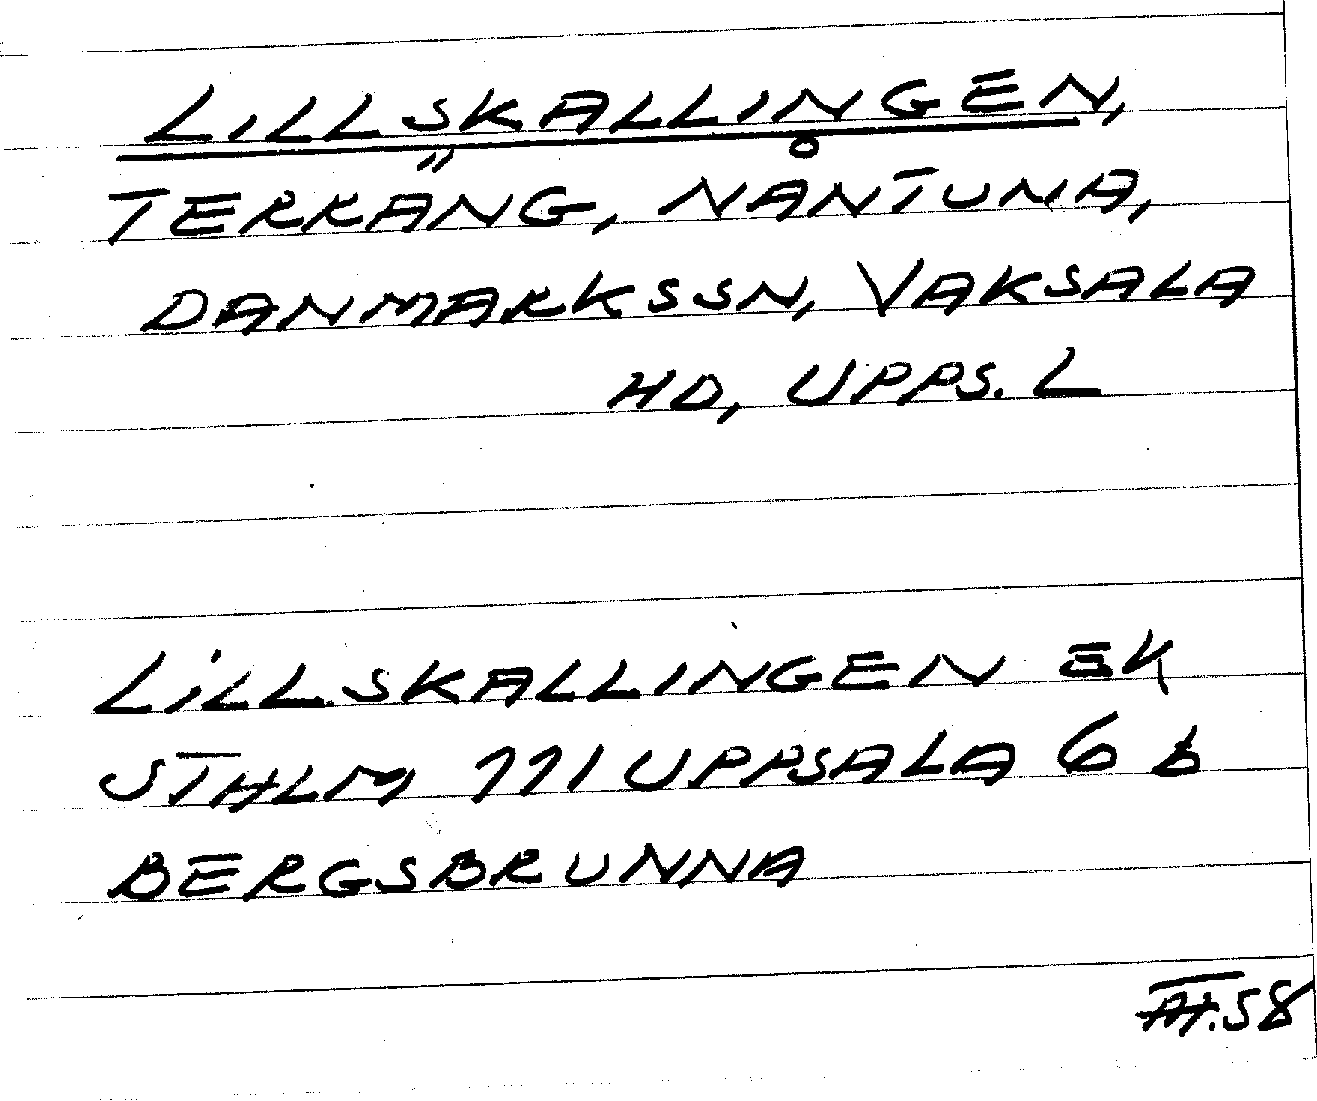 LILLSKALLINGEN,
TERRÄNG, NÅNTUNA,
DANMARKS SN, VAKSALA
HD, UPPS. L
LILLSKALLINGEN EK
STHLM 111 UPPSALA 6 b
BERGSBRUNNA